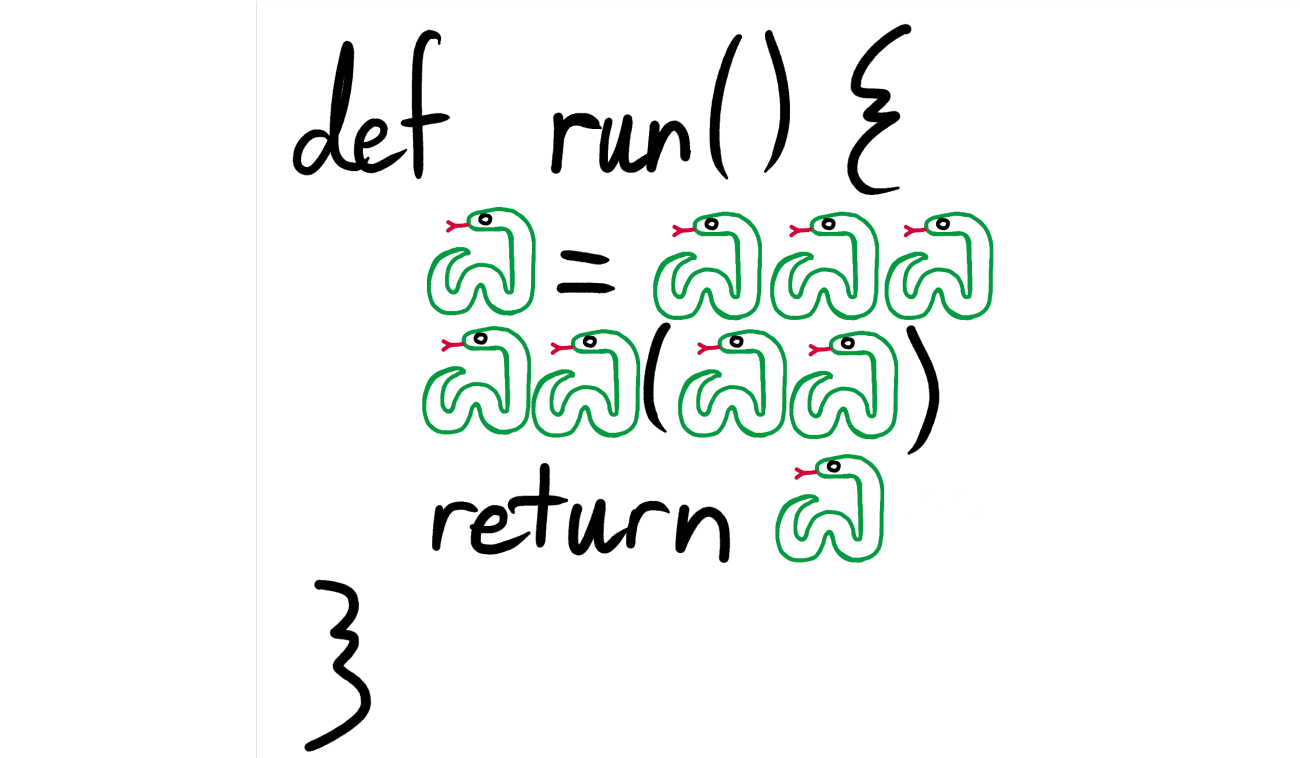 def run() {
=
()
return
}